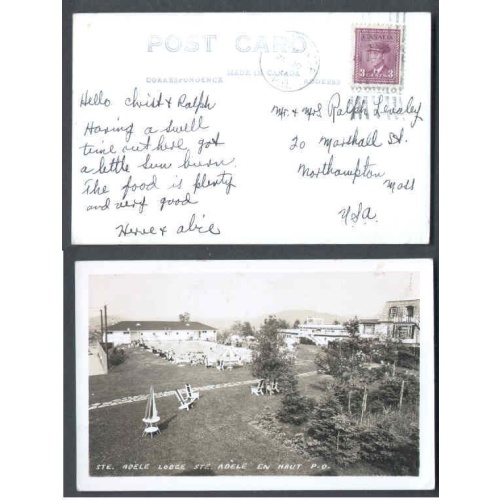 POST CARD
MADE IN CANADA
CORRESPONDENCE ADDRESS
Hello Christ & Ralph
Having a swell
time out here, got
a little sun burn.
The food is plenty
and very good
Herve & Alice
Mr. & Mrs Ralph
20 Marshall St.
Northampton
Mass
USA.
3 3
STE. ADELE LODGE STE. ADELE EN HAUT P.Q.